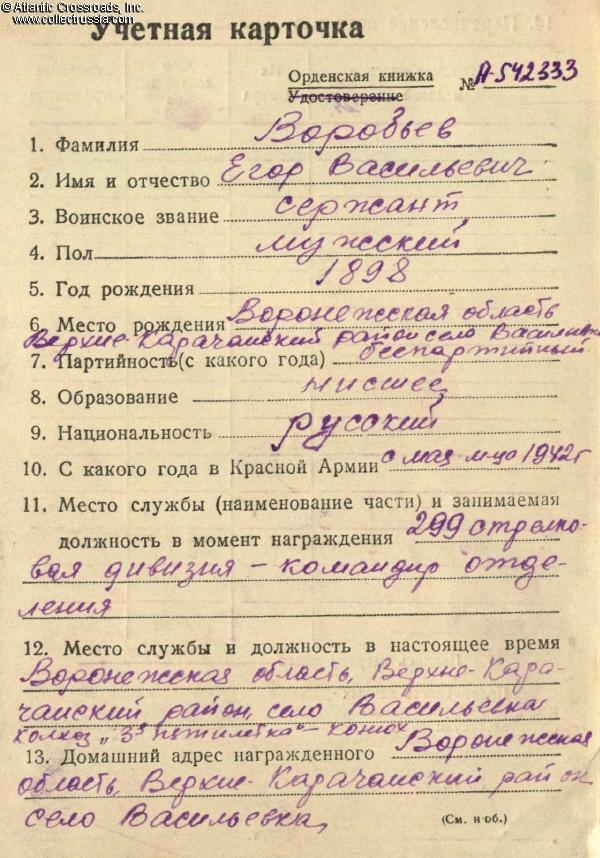 © Atlantic Crossroads, Inc.
© www.collectrussia.com
Учетная карточка
Орденская книжка
Удостоверение
№ А-542333
1. Фамилия Воробьев
2. Имя и отчество Егор Васильевич
3. Воинское звание сержант
4. Пол мужский
5. Год рождения 1898
6. Место рождения Воронежская область
Верхне-Карачанский район село Васильевка
7. Партийность (с какого года) беспартийный
8. Образование низшее
9. Национальность русский
10. С какого года в Красной Армии с мая м-ца 1942г
11. Место службы (наименование части) и занимаемая
должность в момент награждения 299 стрелко-
вая дивизия – командир отде-
ления
12. Место службы и должность в настоящее время
Воронежская область, Верхне-Кара-
чанский район, село Васильевка
Колхоз „3я пятилетка“ – конюх
13. Домашний адрес награжденного Воронежская
область, Верхне-Карачанский район
село Васильевка,
(См. н об.)